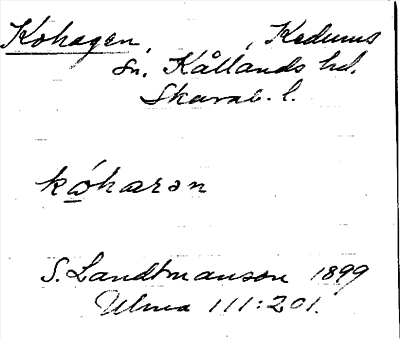 Kohagen, Kedums
sn. Kållands hd.
Skarab. l.
kóharən
S. Landtmanson 1899
Ulma 111:201.